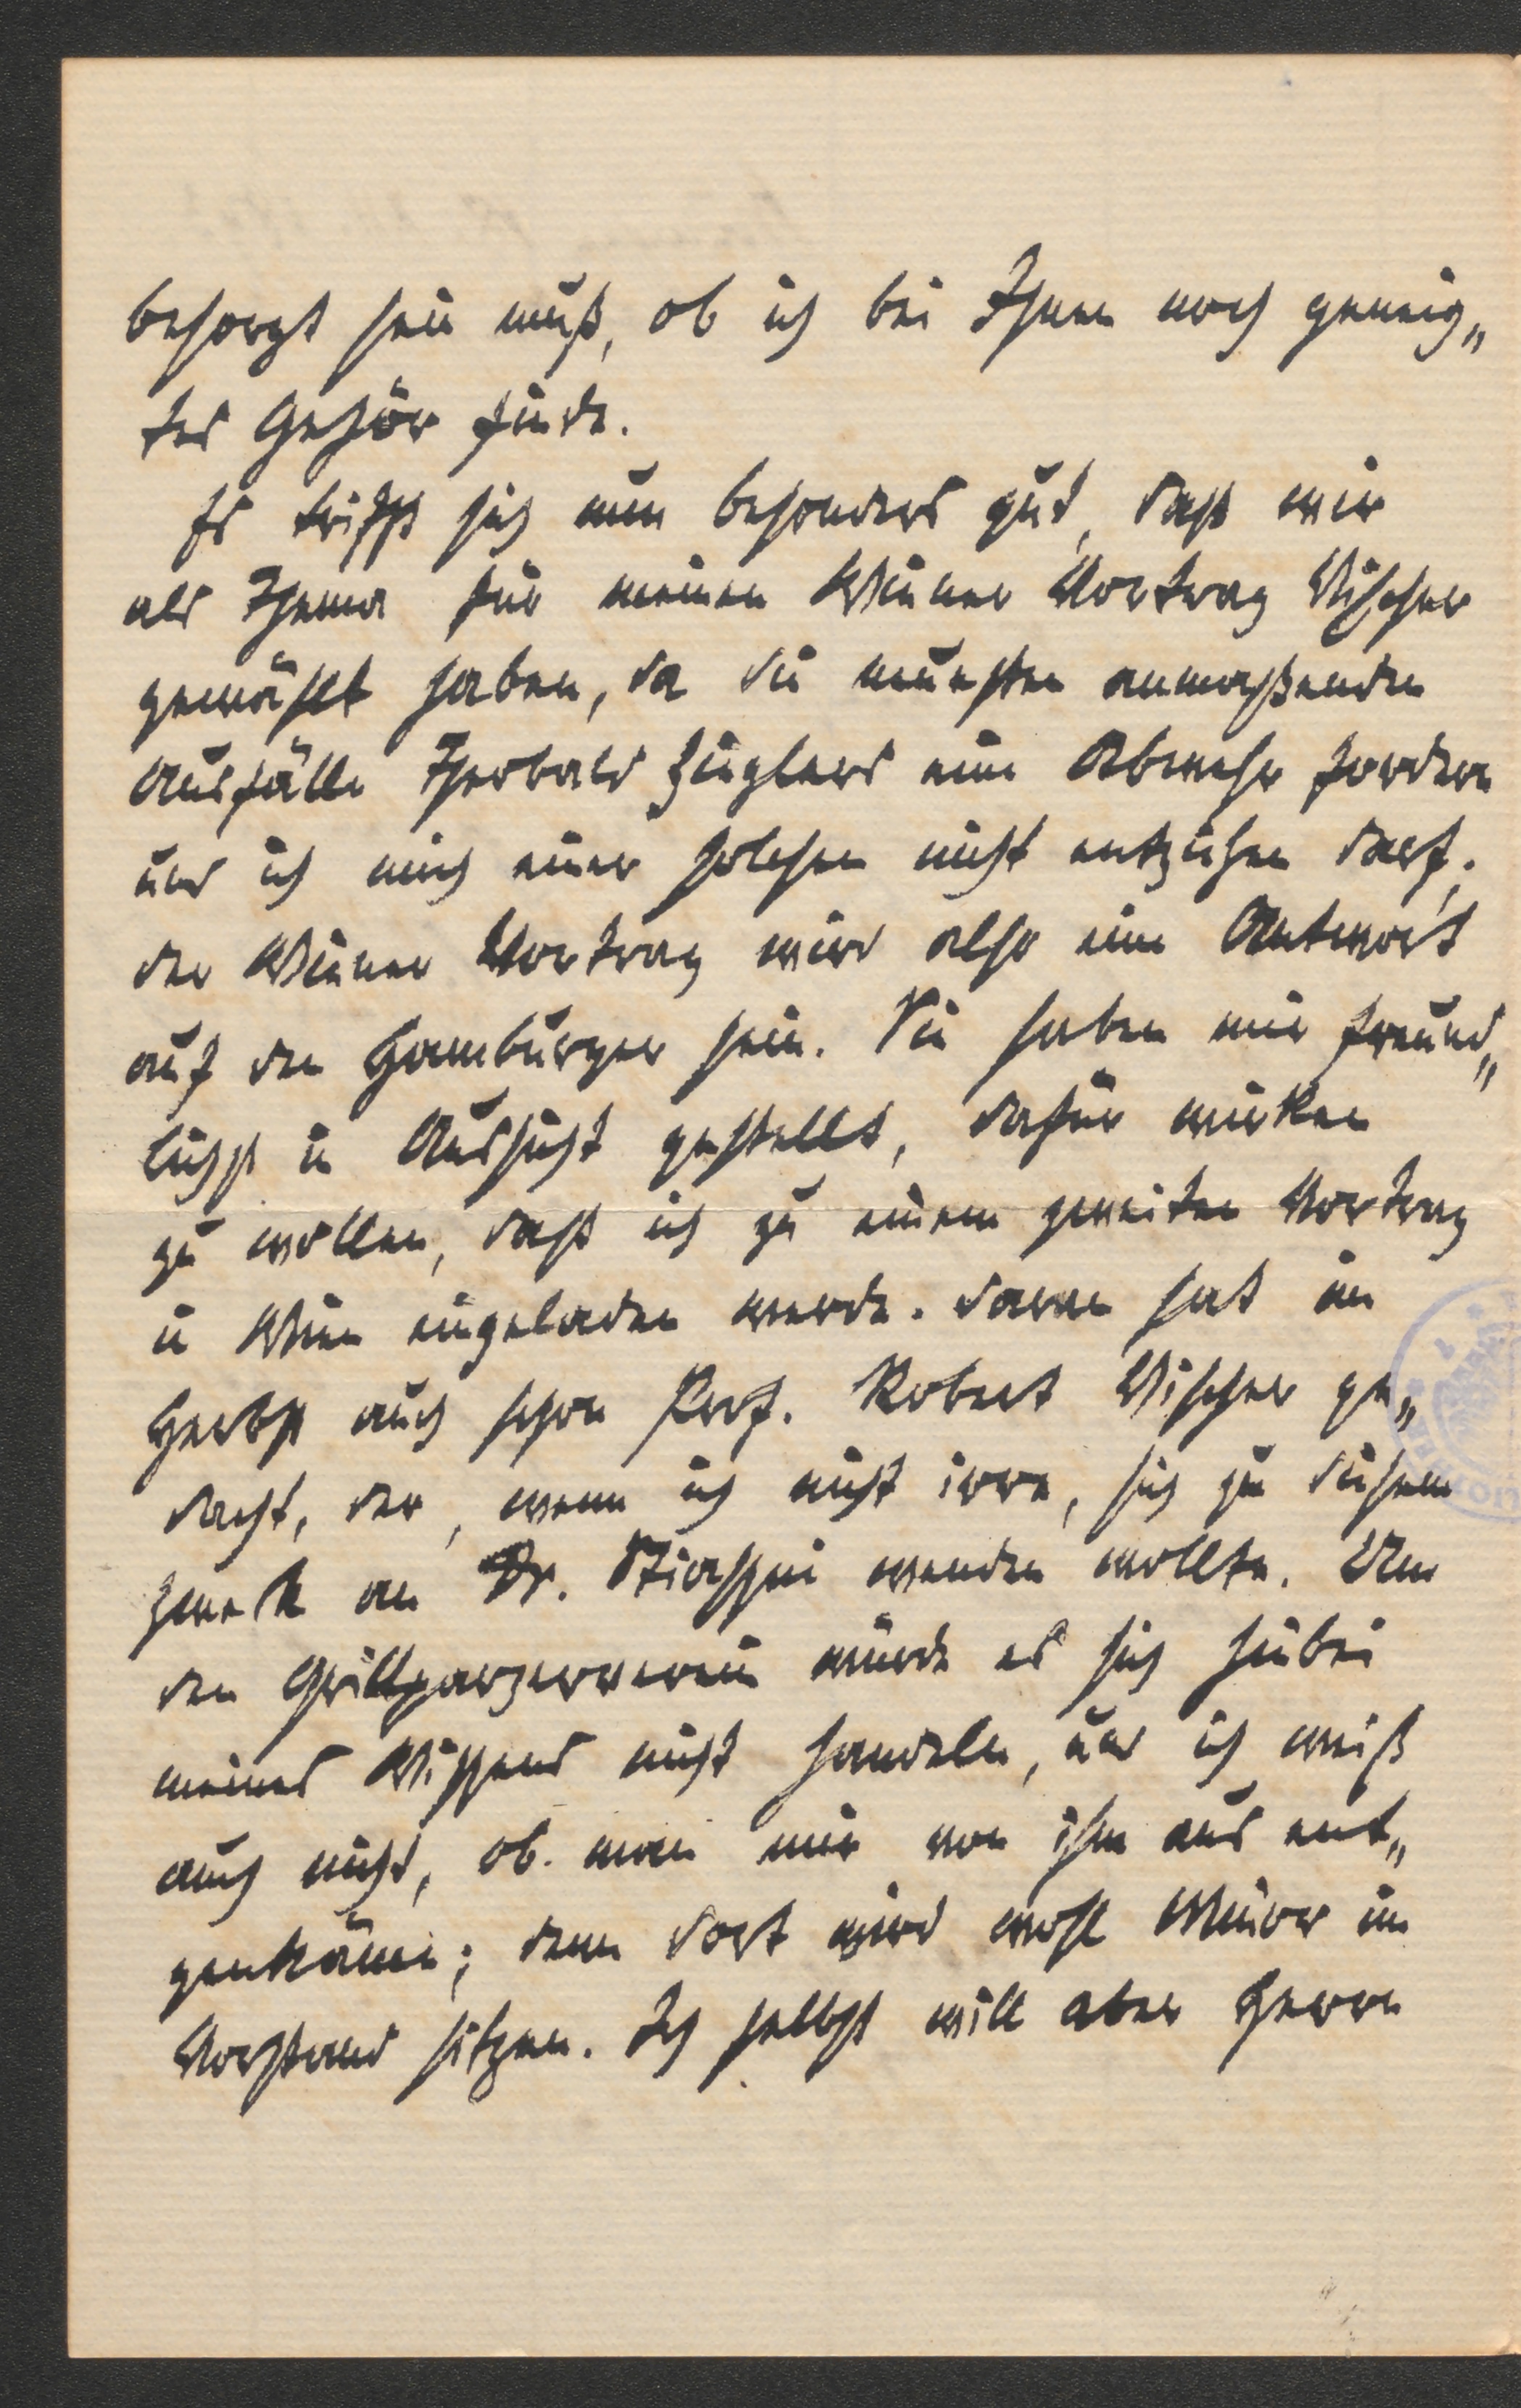 besorgt sein muß, ob ich bei Ihnen noch geneig„
tes Gehör finde.
Es trifft sich nun besonders gut, daß wir
als Thema für meinen Wiener Vortrag Vischer
gewählt haben, da die neuesten anmaßenden
Ausfälle Theobald Zieglers eine Abwehr fordern
und ich mich einer solchen nicht entziehen darf;
der Wiener Vortrag wird also eine Antwort
auf den Hamburger sein. Sie haben mir freund„
lichst in Aussicht gestellt, dafür wirken
zu wollen, daß ich zu einem zweiten Vortrag
in Wien eingeladen werde. Daran hat im
Herbst auch schon Prof. Robert Vischer ge„
dacht, der, wenn ich nicht irre, sich zu diesem
Zweck an Dr. Stiassni wenden wollte. Um
den Grillparzerverein würde es sich hiebei
meines Wissens nicht handeln, und ich weiß
auch nicht, ob man mir von ihm aus ent„
genkäme; denn dort wird wohl Minor im
Vorstand sitzen. Ich selbst will aber Herrn